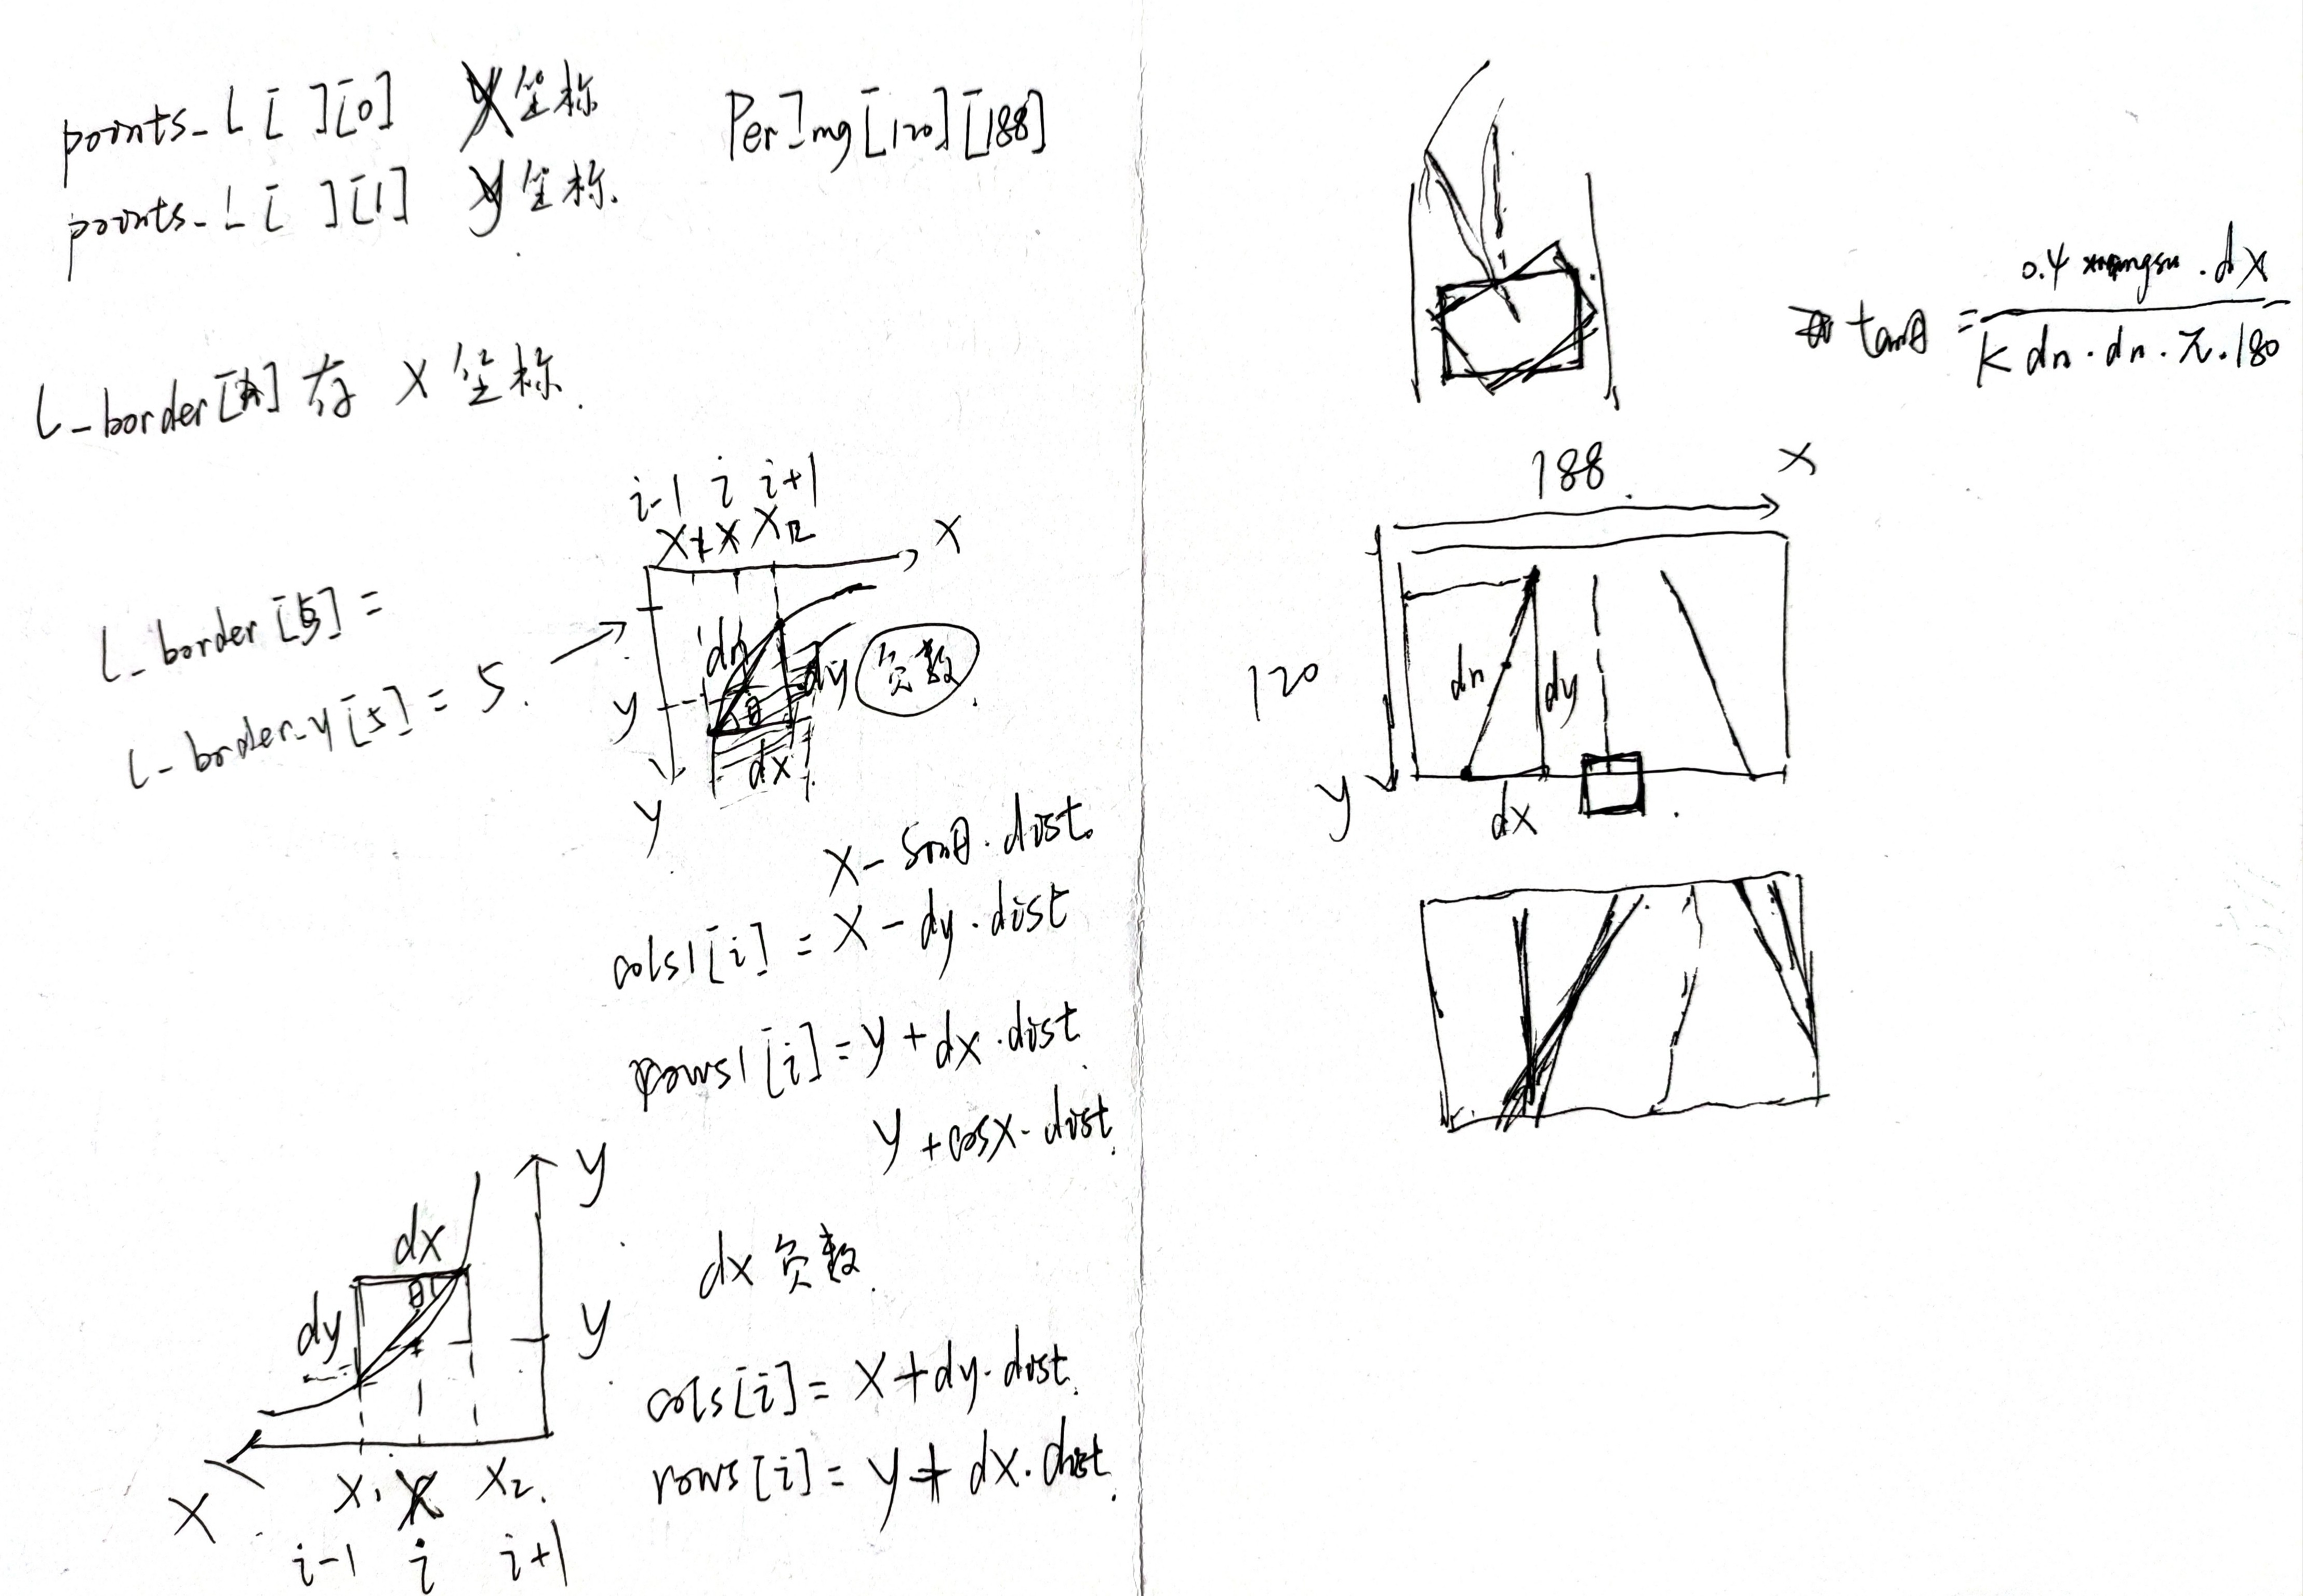 points_L[ ][0] X坐标
points_L[ ][1] y坐标.
PerImg[120][188]
L_border[ ] 存 X 坐标.
i-1 i i+1
X1 X X2
X
L_border[5] =
L_border_y[5] = 5.
dn
dy 负数
y
θ
dx
y
X - sinθ·dist.
cols1[i] = X - dy·dist
rows1[i] = y + dx·dist
y + cosx·dist.
y
dx
θ
dy
y
X
X1 X X2.
i-1 i i+1
dx 负数.
cols[i] = X + dy·dist.
rows[i] = y + dx·dist.
tanθ = 0.4 ·dx
K dn·dn·π·180
188
X
120
dn
dy
y
dx